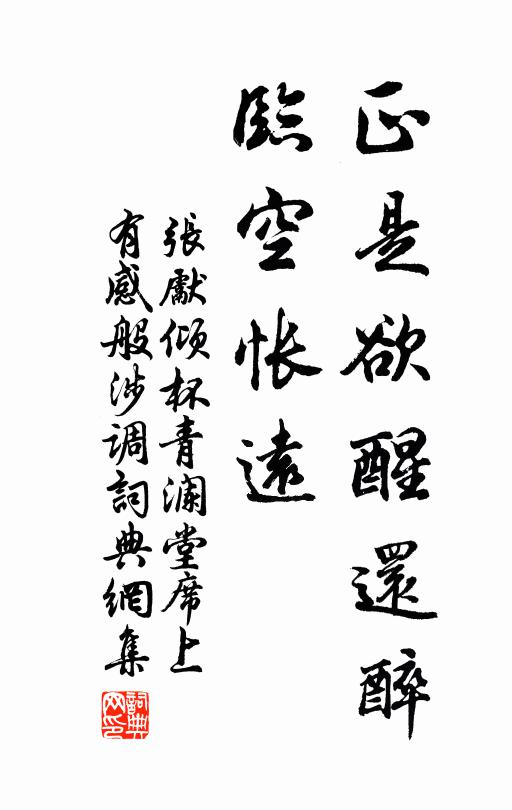 正是欲醒還醉
臨空悵遠
張獻傾杯青澜堂席上
有感般涉调詞典網集
詞典网印